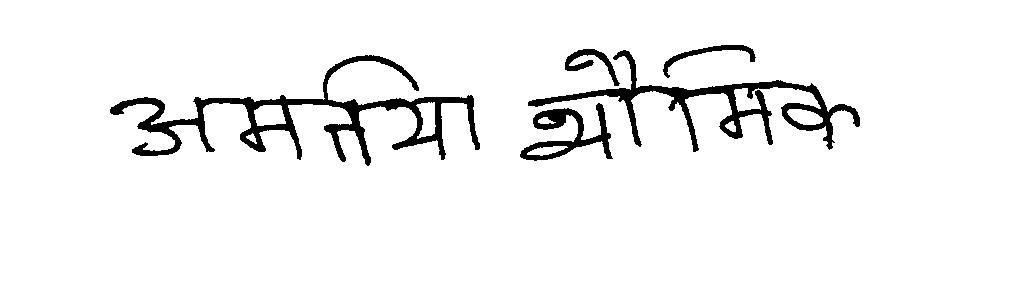 अमत्तिया भौमिक